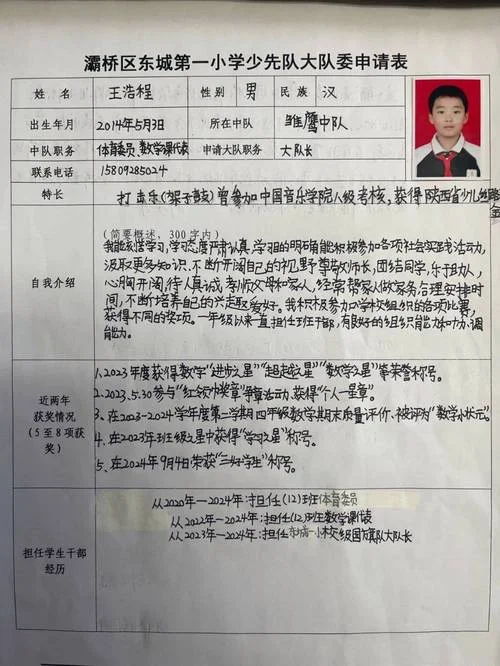 灞桥区东城第一小学少先队大队委申请表
姓 名 王浩程 性别 男 民 族 汉
出生年月 2014年5月3日 所在中队 雏鹰中队
中队职务 体育委员、数学课代表 申请大队职务 大队长
联系电话 15809285024
特长 打击乐(架子鼓)曾参加中国音乐学院八级考核,获得陕西省少儿
(简要概述,300字内)
我能刻苦学习,学习态度严肃认真,学习的明确能积极参加各项社会实践活动,
自我介绍 汲取更多知识.不断开阔自己的视野尊敬师长,团结同学,乐于助人,
心胸开阔,待人真诚,孝顺父母和家人,经常帮家人做家务合理安排时
间,不断培养自己的兴趣爱好。我积极参加学校组织的各项比赛,
获得不同的奖项。一年级以来一直担任班干部,有良好的组织能力和协调
能力。
近两年
获奖情况
(5至8项获
奖)
1.2023年度获得数学“进步之星”“超越之星”“数学之星”等荣誉称号。
2、2023.5.30参与“红领巾奖章”争章活动,获得“个人一星章”。
3、在2023-2024学年度第二学期四年级数学期末质量评价,被评为“数学小状元”。
4、在2023年班级之星中获得“学习之星”称号。
5、在2024年9月4日荣获“三好学生”称号。
担任学生干部
经历
从2020年—2024年:担任(12)班体育委员
从2022年—2024年:担任(12)班数学课代表
从2023年—2024年:担任东城一小校级国旗队大队长